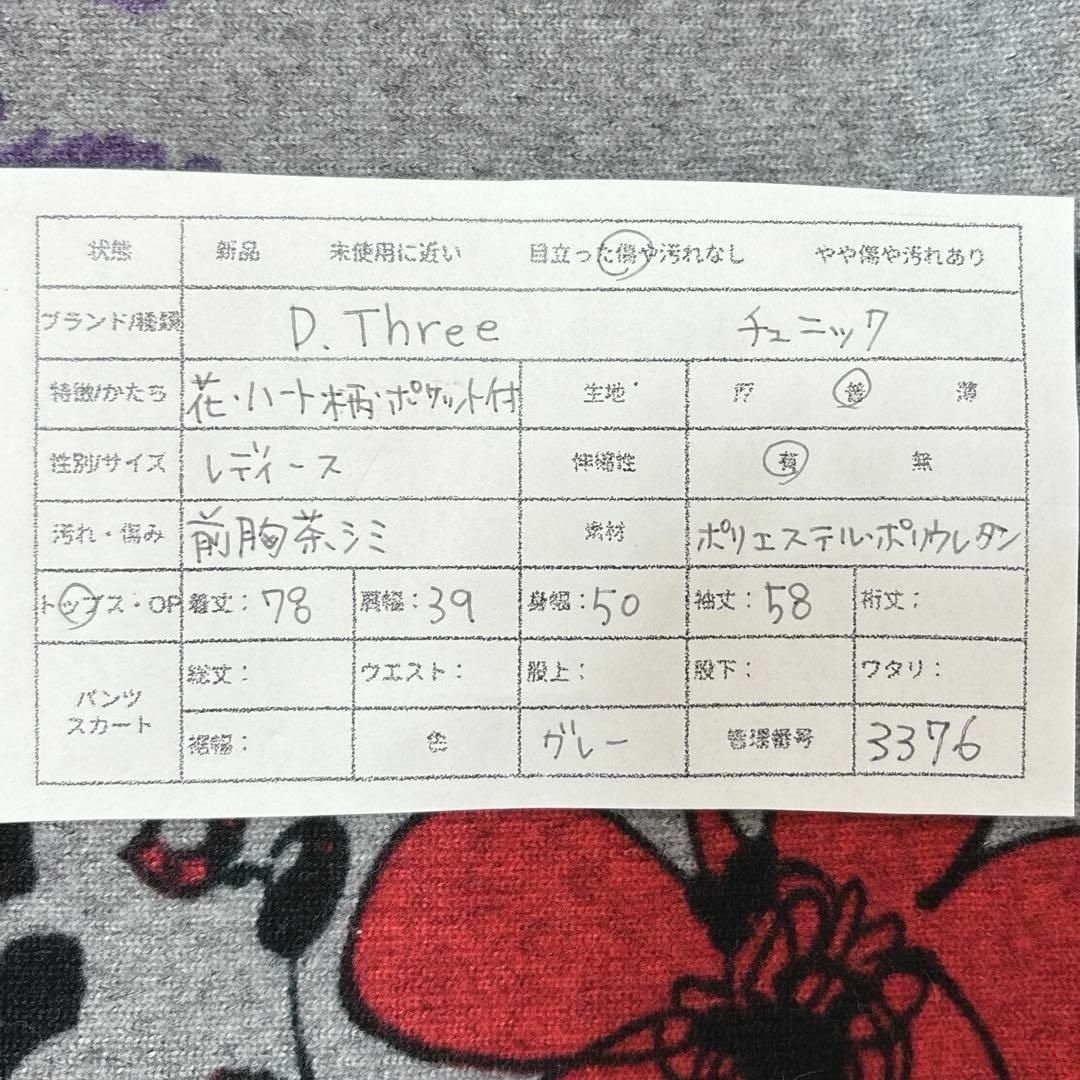 状態 新品 未使用に近い 目立った傷や汚れなし やや傷や汚れあり
ブランド/種類 D.Three チュニック
特徴/かたち 花・ハート柄・ポケット付 生地 厚 普 薄
性別/サイズ レディース 伸縮性 有 無
汚れ・傷み 前胸茶シミ 素材 ポリエステル・ポリウレタン
トップス・OP 着丈：78 肩幅：39 身幅：50 袖丈：58 裄丈：
パンツ
スカート
総丈： ウエスト： 股上： 股下： ワタリ：
裾幅： 色 グレー 管理番号 3376